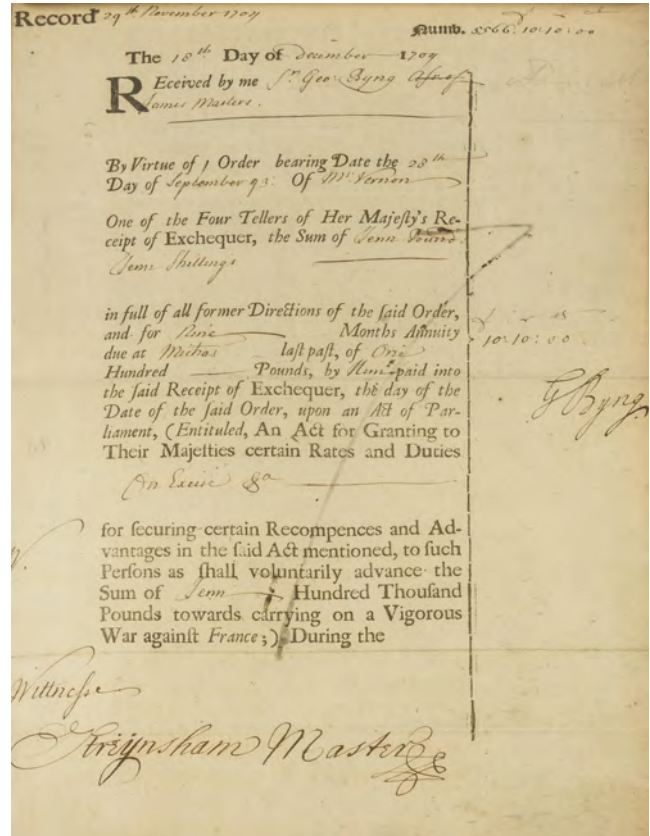 Record 29th November 1704
Numb. 566: 10:10:00
The 18th Day of December 1704
REceived by me Sr Geo: Byng Assee of
James Masters.
By Virtue of 1 Order bearing Date the 28th
Day of September 93: Of Mr Vernon
One of the Four Tellers of Her Majeſty's Re-
ceipt of Exchequer, the Sum of Tenn Pound
Tenn Shillings
in full of all former Directions of the ſaid Order,
and for Nine Months Annuity
due at Michas laſt paſt, of One
Hundred Pounds, by him paid into
the ſaid Receipt of Exchequer, the day of the
Date of the ſaid Order, upon an Act of Par-
liament, (Entituled, An Act for Granting to
Their Majeſties certain Rates and Duties
On Excise &a
for ſecuring certain Recompences and Ad-
vantages in the ſaid Act mentioned, to ſuch
Perſons as ſhall voluntarily advance the
Sum of Tenn Hundred Thouſand
Pounds towards carrying on a Vigorous
War againſt France;) During the
10:10:00
G Byng
Wittnesse
Streynsham Master